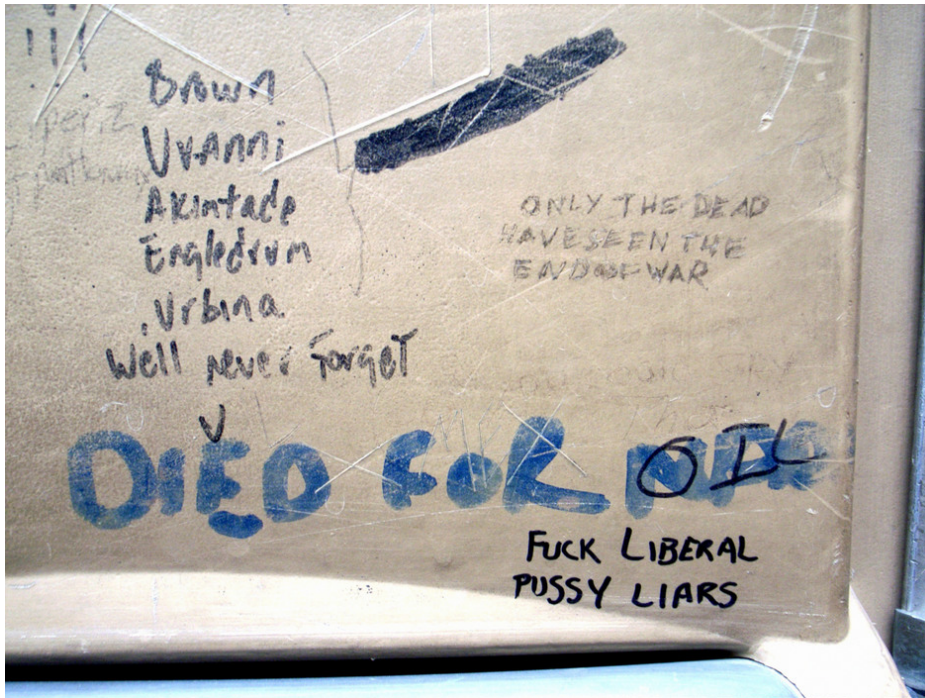 !!!
Brown
Uvanni
Akintade
Engledrum
Urbina
Well never Forget
ONLY THE DEAD
HAVE SEEN THE
END OF WAR
DIED FOR
OIL
FUCK LIBERAL
PUSSY LIARS